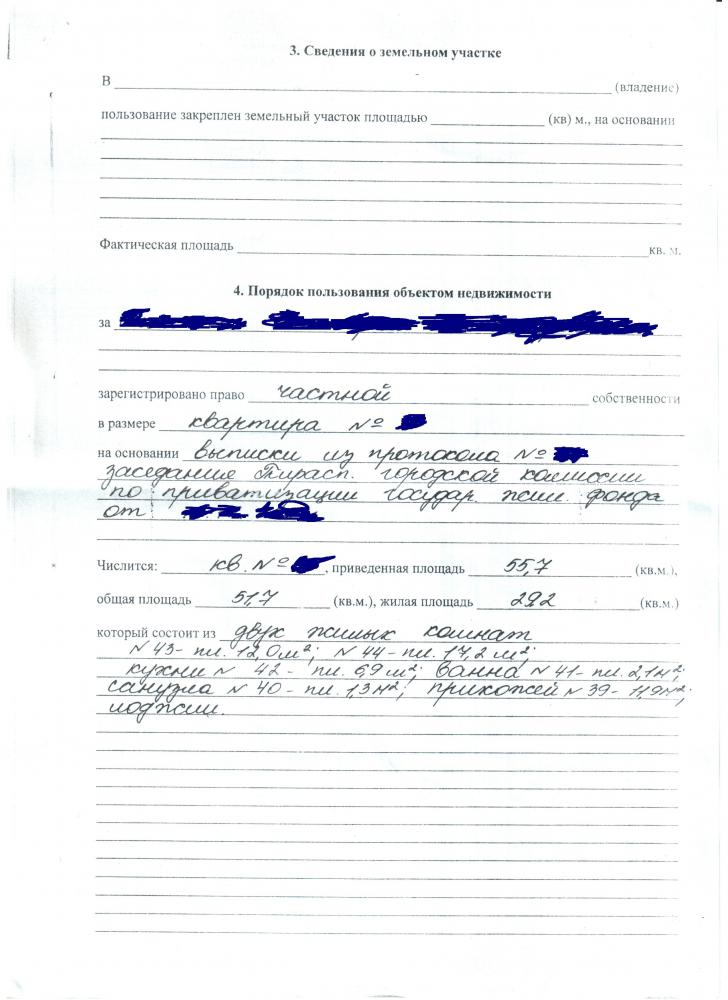 3. Сведения о земельном участке
В (владение)
пользование закреплен земельный участок площадью (кв) м., на основании
Фактическая площадь кв. м.
4. Порядок пользования объектом недвижимости
за
зарегистрировано право частной собственности
в размере квартира №
на основании выписки из протокола №
заседание Тирасп. городской комиссии
по приватизации государ. жил. фонда
от
Числится: кв. № , приведенная площадь 55,7 (кв.м.),
общая площадь 51,7 (кв.м.), жилая площадь 29,2 (кв.м.)
который состоит из двух жилых комнат
N 43- пл. 12,0 м²; N 44- пл. 17,2 м²;
кухни N 42- пл. 6,9 м²; ванна N 41- пл. 2,1м²;
санузла N 40- пл. 1,3м²; прихожей N 39- 11,9м²;
лоджии.